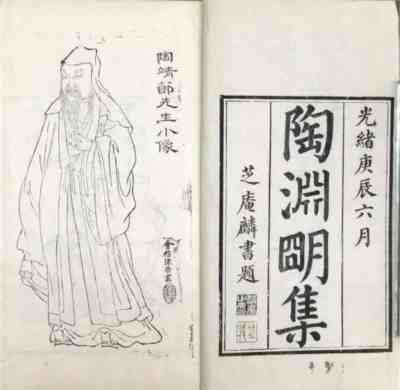 光緒庚辰六月
陶淵明集
芝庵麟書題
陶靖節先生小像